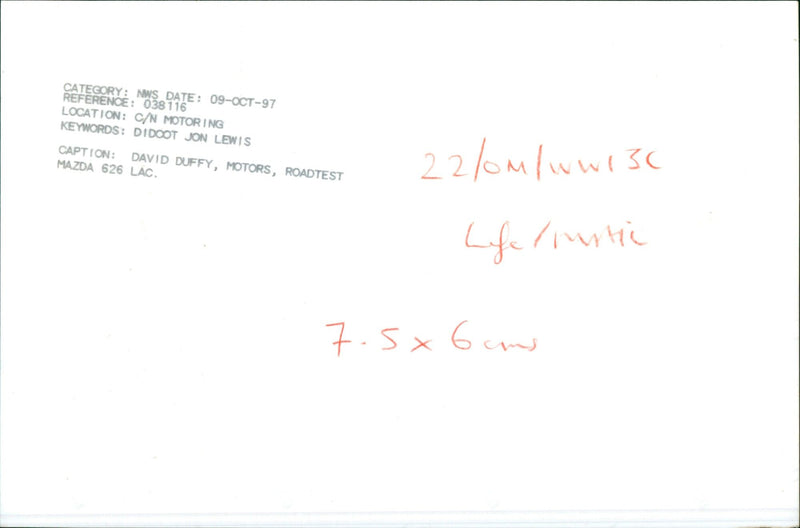 CATEGORY: NWS DATE: 09-OCT-97
REFERENCE: 038116
LOCATION: C/N MOTORING
KEYWORDS: DIDCOT JON LEWIS
CAPTION: DAVID DUFFY, MOTORS, ROADTEST
MAZDA 626 LAC.
22/OM/WW13C
Life/
7.5 x 6 cms